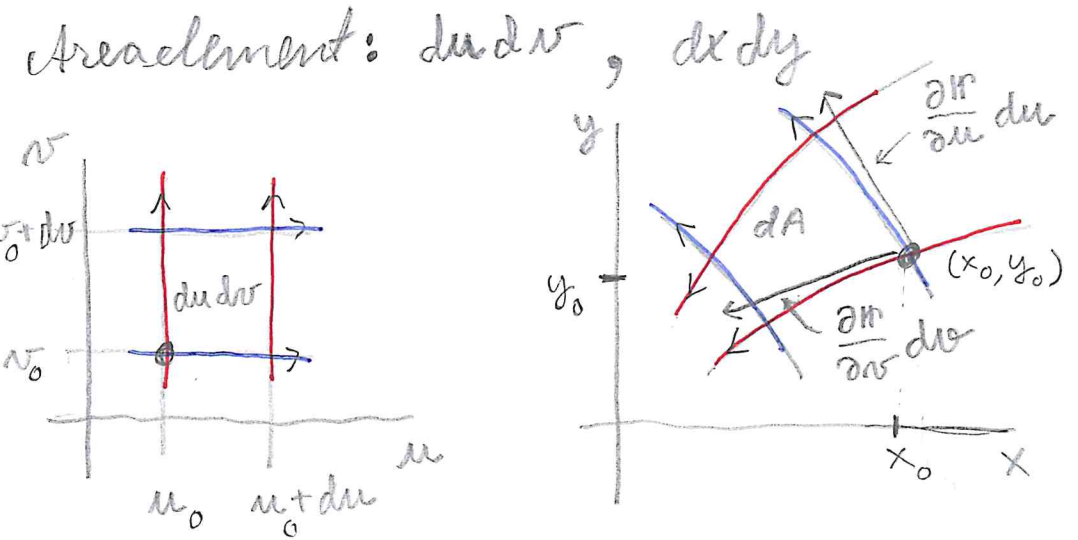 Areaelement: dudv, dxdy
v
v₀+dv
dudv
v₀
u
u₀ u₀+du
y
∂𝐫/∂u du
dA
y₀
(x₀, y₀)
∂𝐫/∂v dv
x₀ x